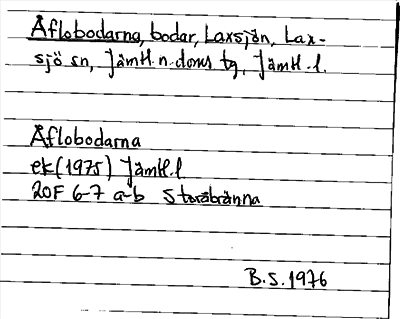 Åflobodarna, bodar, Laxsjön, Lax-
sjö sn, Jämtl. n. doms tg, Jämtl. l.
Åflobodarna
ek (1975) Jämtl. l
20F 6-7 a-b Storåbränna
B.S. 1976